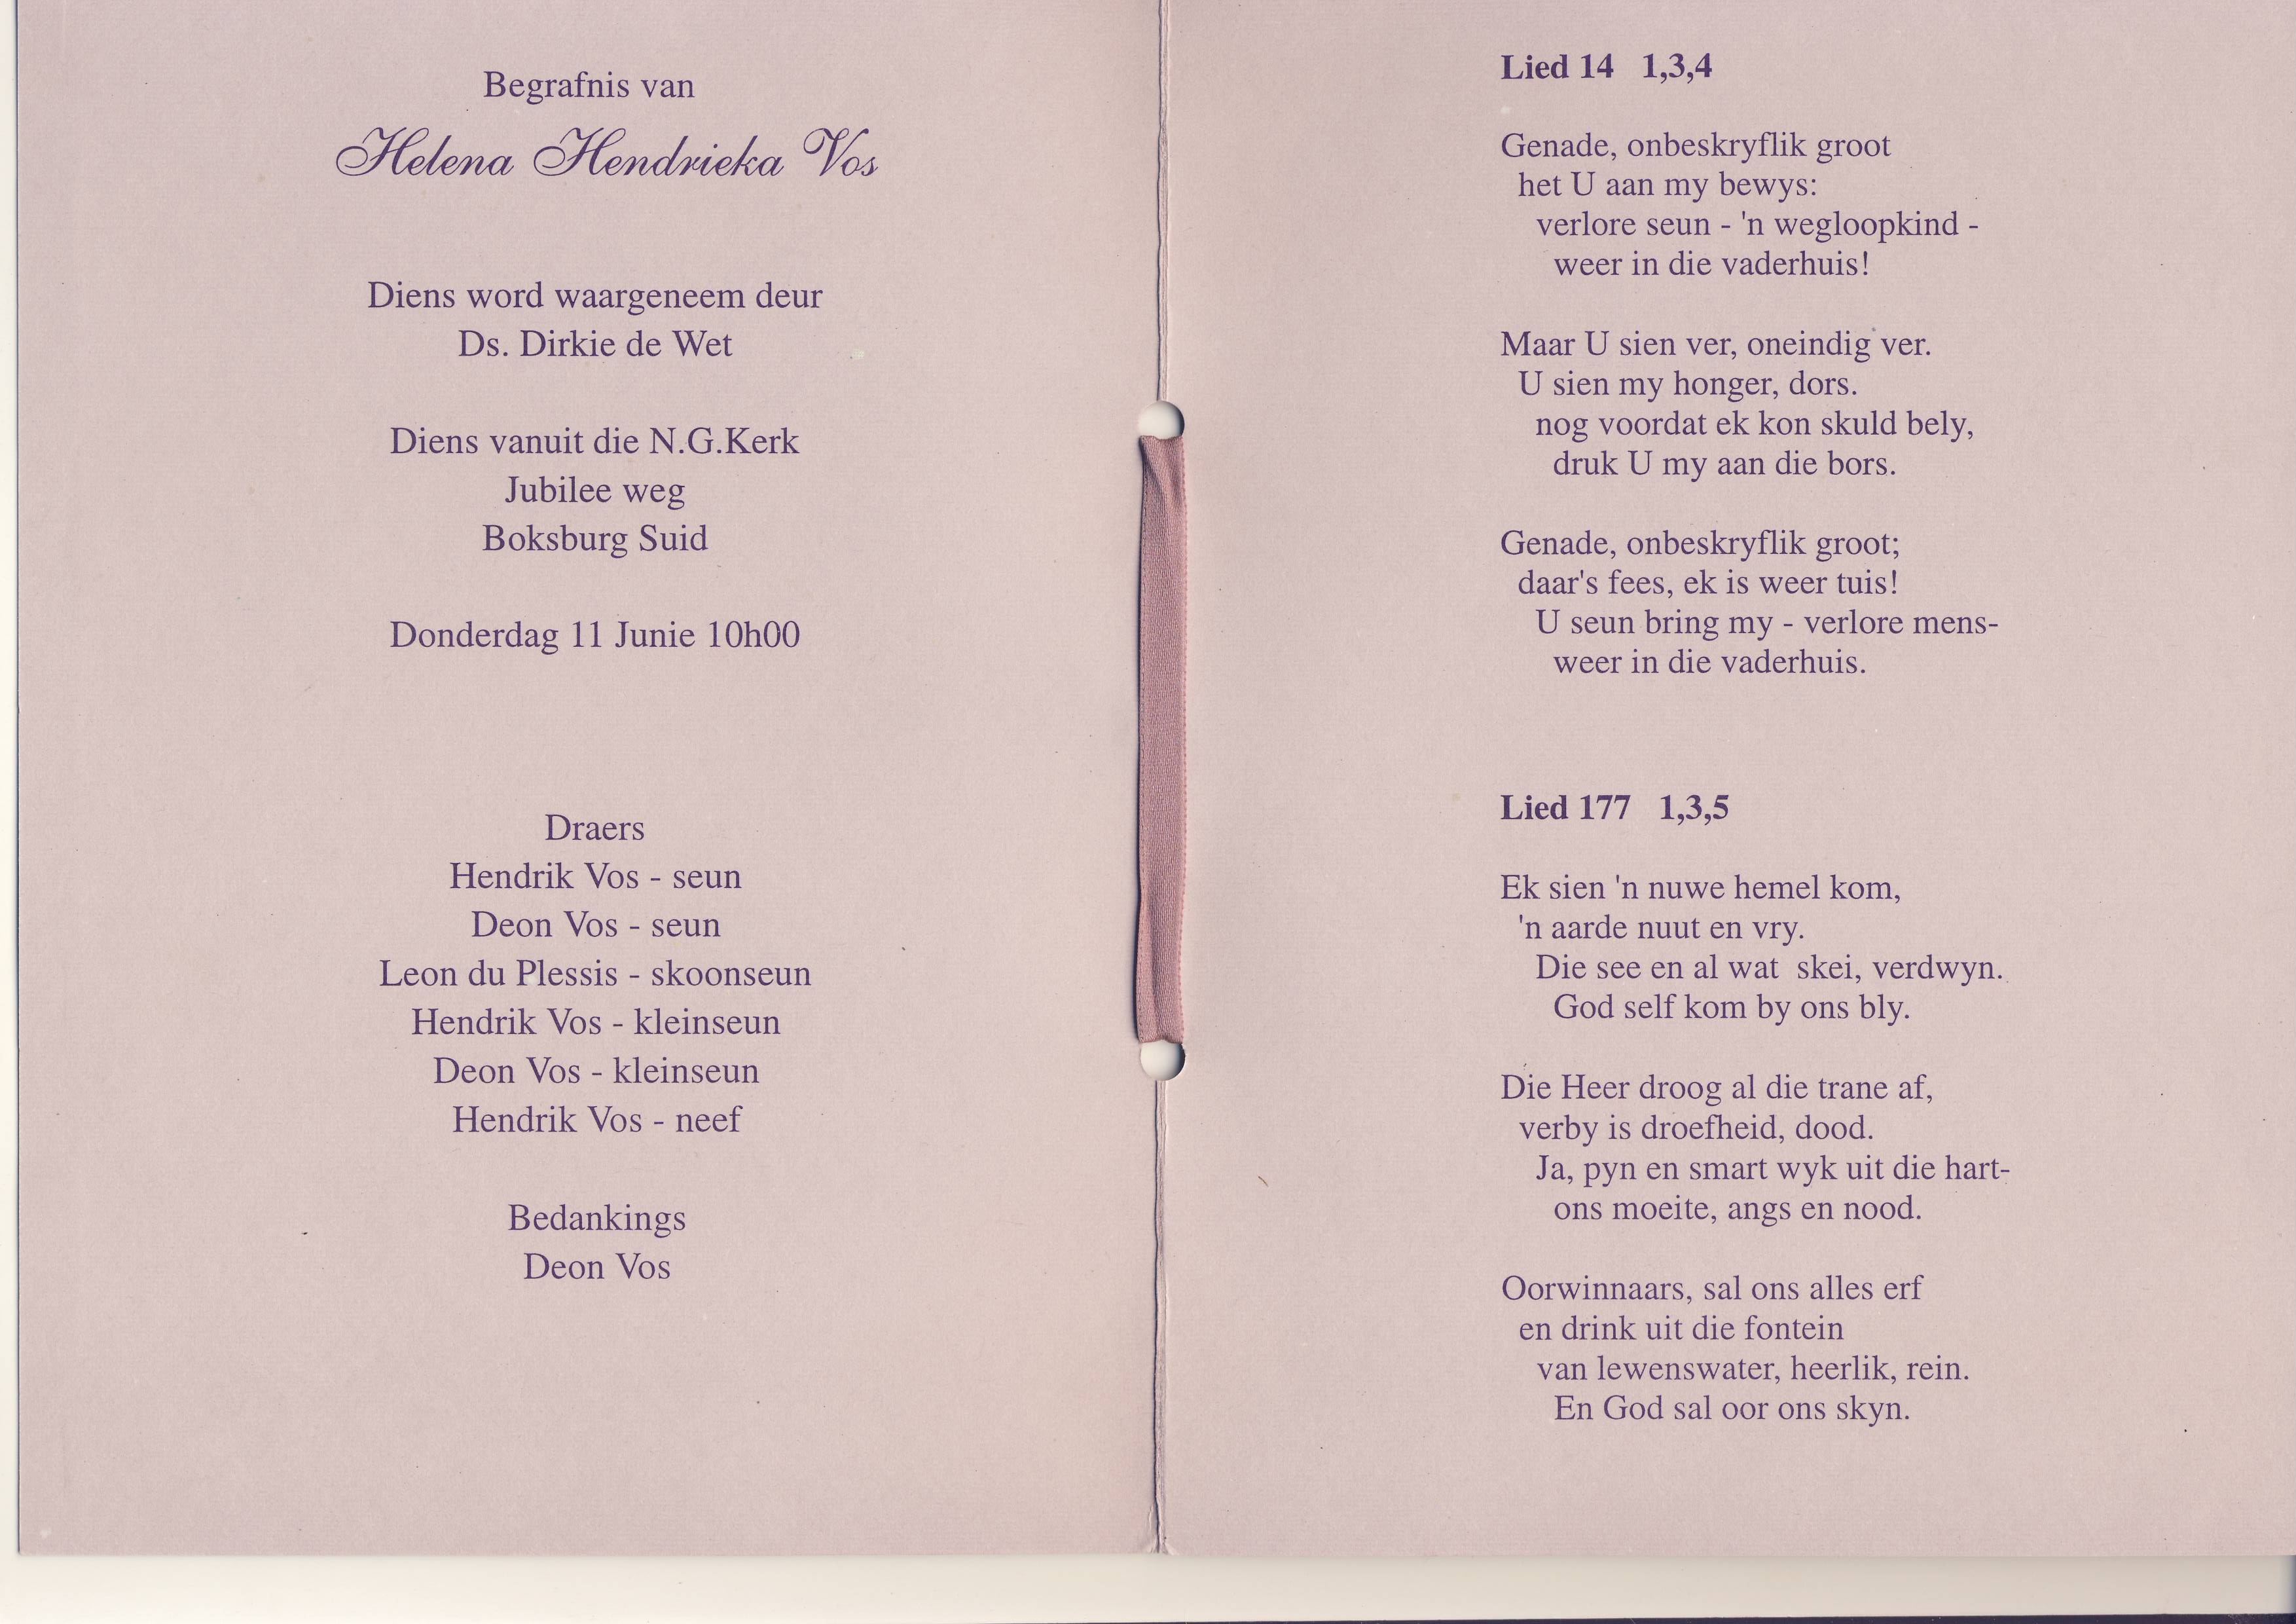 Begrafnis van
Helena Hendrieka Vos
Diens word waargeneem deur
Ds. Dirkie de Wet
Diens vanuit die N.G.Kerk
Jubilee weg
Boksburg Suid
Donderdag 11 Junie 10h00
Draers
Hendrik Vos - seun
Deon Vos - seun
Leon du Plessis - skoonseun
Hendrik Vos - kleinseun
Deon Vos - kleinseun
Hendrik Vos - neef
Bedankings
Deon Vos
Lied 14 1,3,4
Genade, onbeskryflik groot
het U aan my bewys:
verlore seun - 'n wegloopkind -
weer in die vaderhuis!
Maar U sien ver, oneindig ver.
U sien my honger, dors.
nog voordat ek kon skuld bely,
druk U my aan die bors.
Genade, onbeskryflik groot;
daar's fees, ek is weer tuis!
U seun bring my - verlore mens-
weer in die vaderhuis.
Lied 177 1,3,5
Ek sien 'n nuwe hemel kom,
'n aarde nuut en vry.
Die see en al wat skei, verdwyn.
God self kom by ons bly.
Die Heer droog al die trane af,
verby is droefheid, dood.
Ja, pyn en smart wyk uit die hart-
ons moeite, angs en nood.
Oorwinnaars, sal ons alles erf
en drink uit die fontein
van lewenswater, heerlik, rein.
En God sal oor ons skyn.